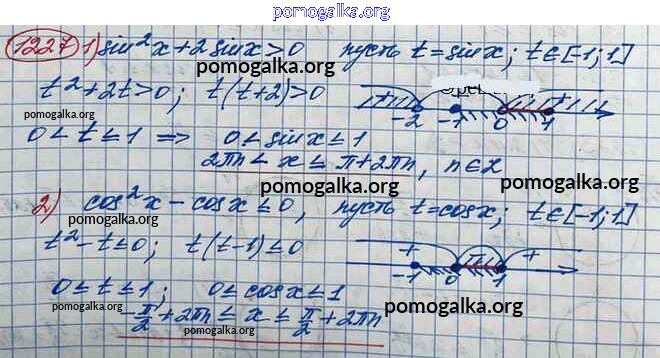 pomogalka.org
1227 1) sin²x + 2 sinx > 0 пусть t = sinx; t ∈ [-1; 1]
pomogalka.org
t² + 2t > 0; t(t+2) > 0
-2 -1 0 1
pomogalka.org
0 < t ≤ 1 ⟹ 0 < sinx ≤ 1
pomogalka.org
2πn < x ≤ π + 2πn, n ∈ Z
pomogalka.org
pomogalka.org
2) cos²x - cosx ≤ 0, пусть t = cosx; t ∈ [-1; 1]
pomogalka.org
pomogalka.org
t² - t ≤ 0; t(t-1) ≤ 0
+ -1 0 1 +
0 ≤ t ≤ 1; 0 ≤ cosx ≤ 1
pomogalka.org
-π/2 + 2πn ≤ x ≤ π/2 + 2πn
pomogalka.org
pomogalka.org